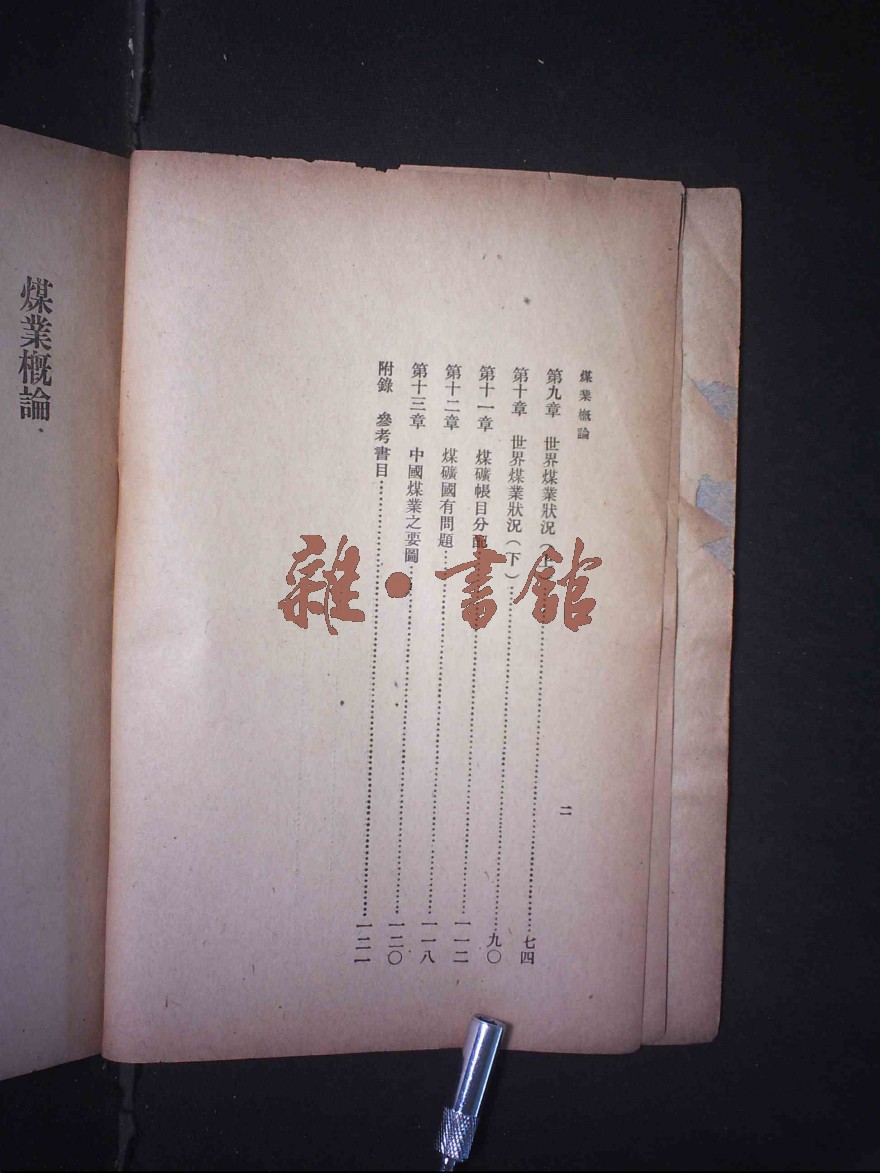 煤業概論
二
第九章 世界煤業狀況(上)……七四
第十章 世界煤業狀況(下)……九〇
第十一章 煤礦帳目分配……一一二
第十二章 煤礦國有問題……一一八
第十三章 中國煤業之要圖……一二〇
附錄 參考書目……一二一
煤業概論
雜·書館